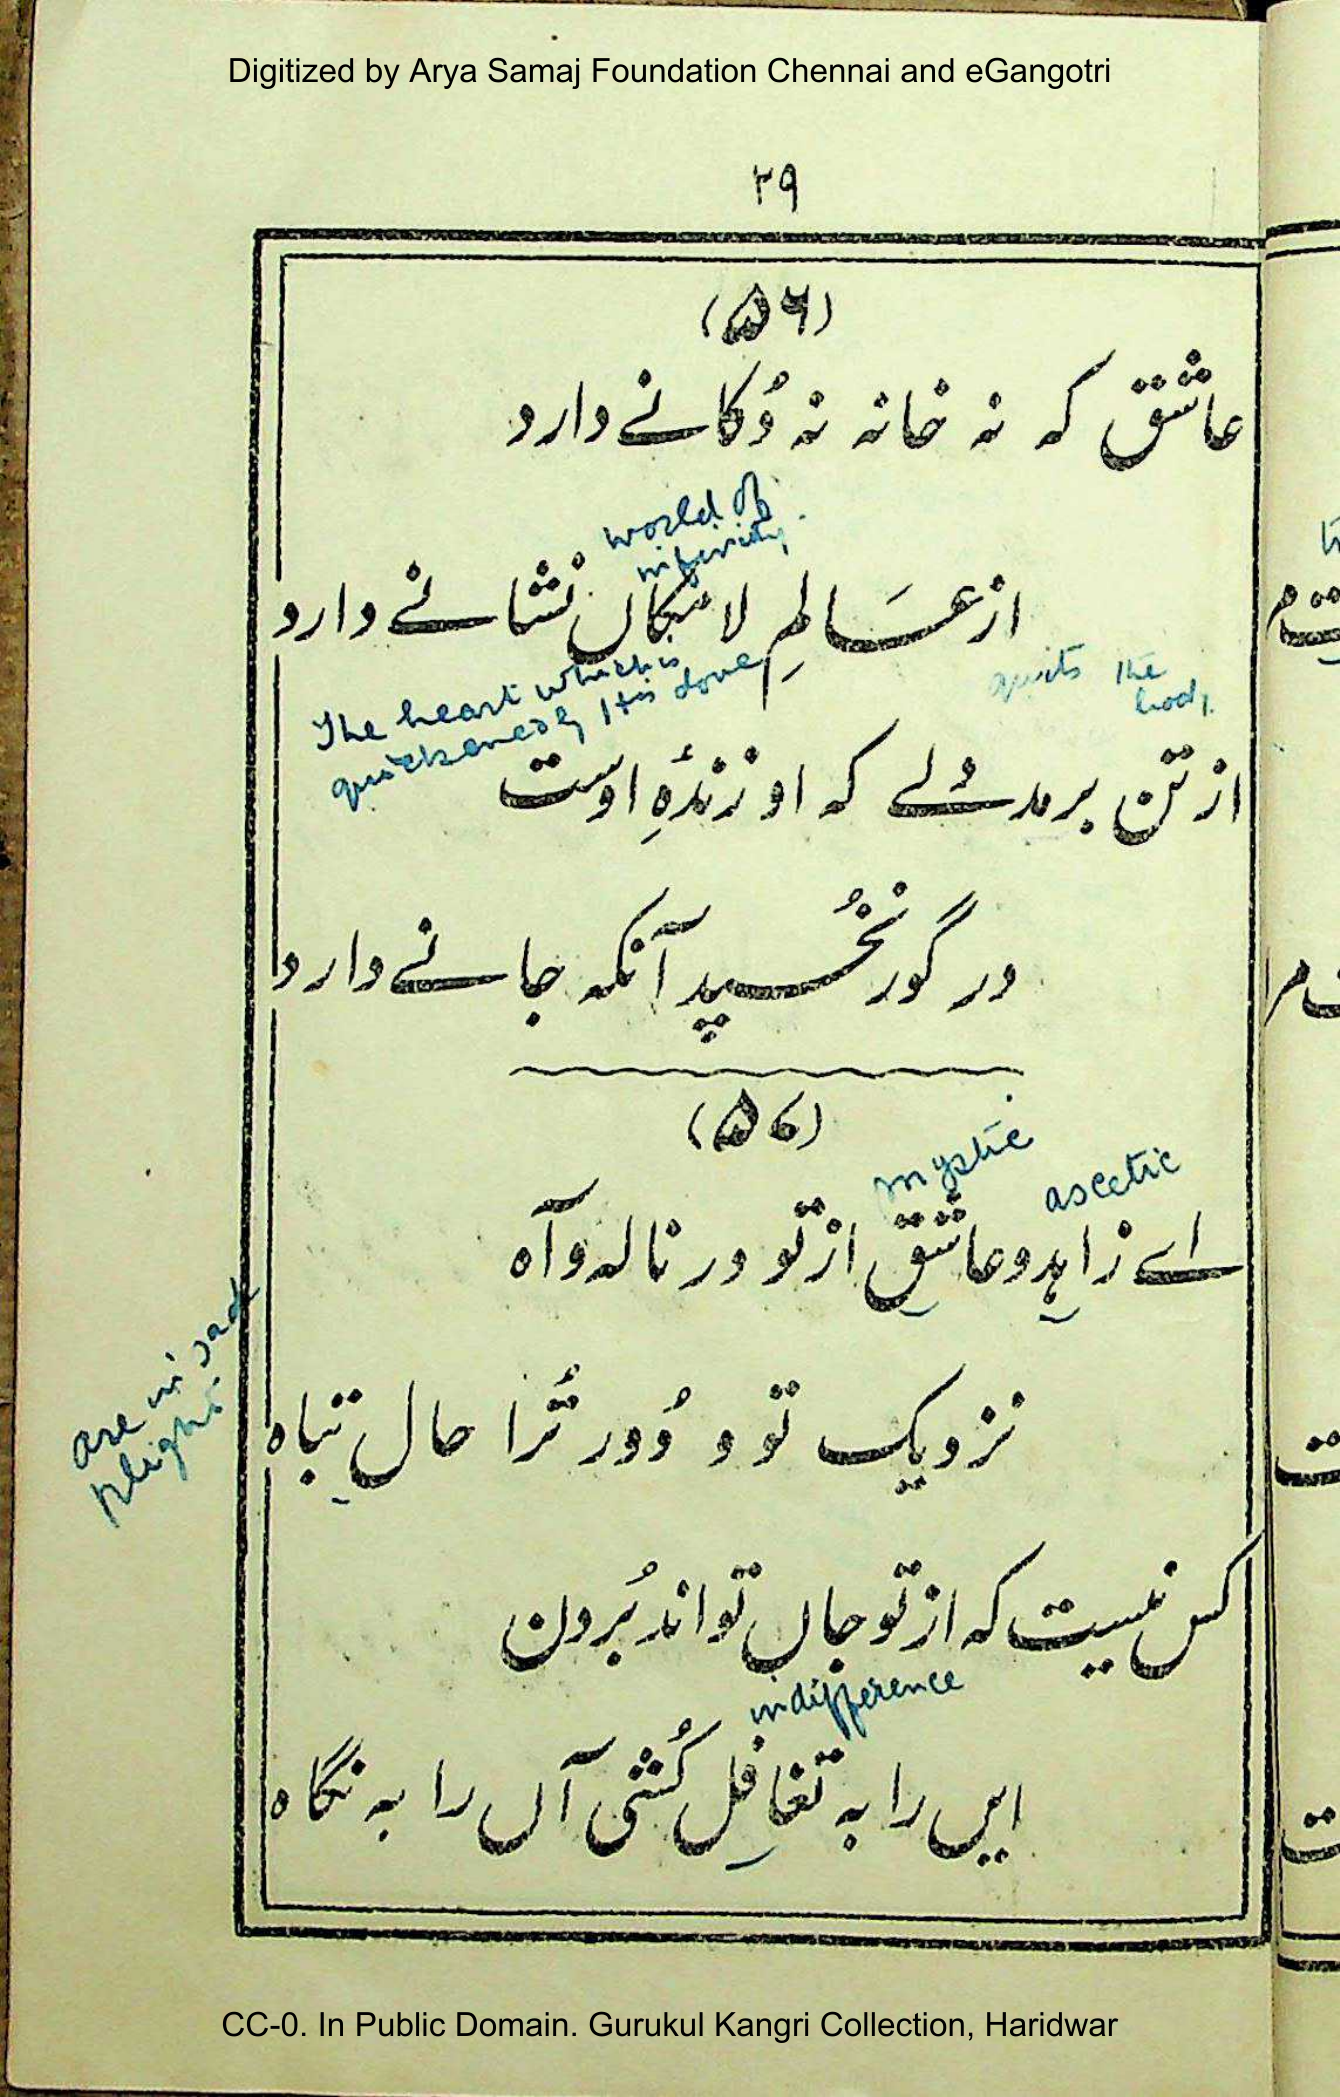 Digitized by Arya Samaj Foundation Chennai and eGangotri
۲۹
(۵۶)
عاشق که نه خانه نه دُکانے دارد
world of
infinity.
از عَالمِ لا مکاں نشانے دارد
The heart which is
quickened by His love
quits the
body.
از تن برمد دلے که او زندۂِ اوست
در گور نخُسپد آنکه جانے دارد
(۵۷)
mystic
ascetic
اے زاہِد و عاشِق از تو در ناله و آه
are in sad
plight
نزدیک تو و دُور تُرا حالِ تباه
کس نیست که از تو جاں تواند بُردن
indifference
ایں را به تغافِل کُشی آں را به نگاه
CC-0. In Public Domain. Gurukul Kangri Collection, Haridwar